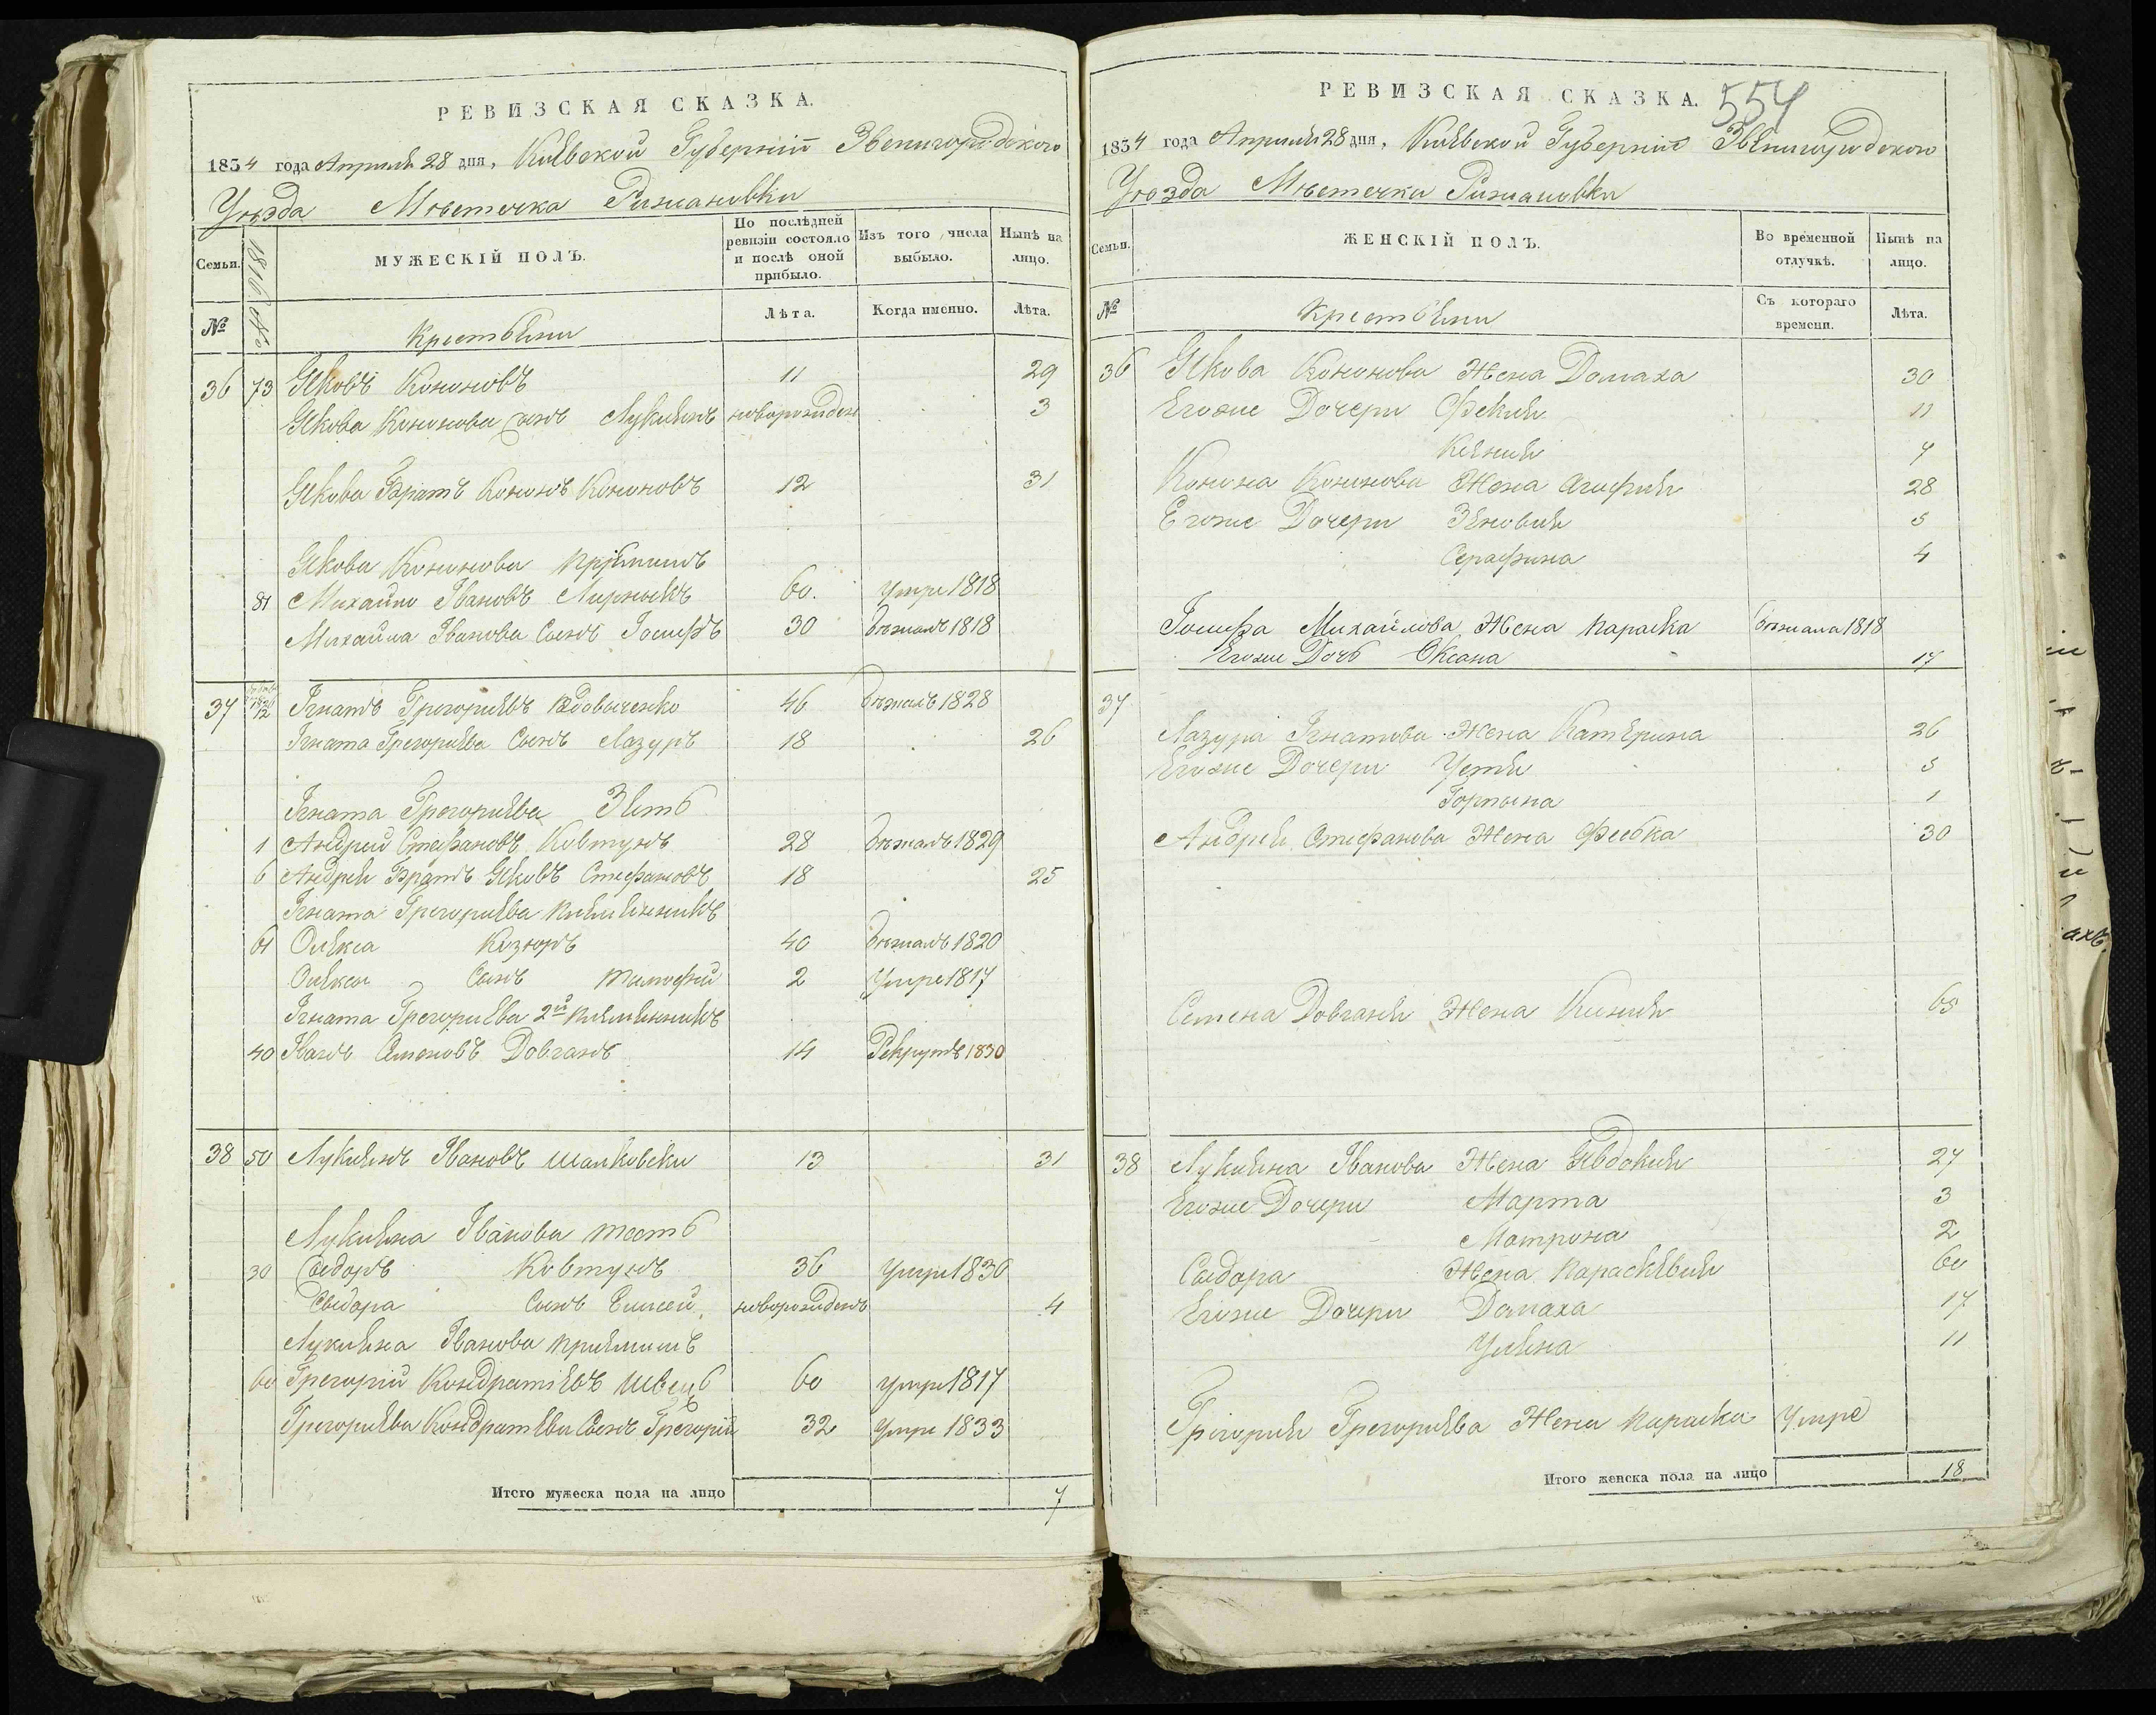 РЕВИЗСКАЯ СКАЗКА.
1834 года Апреля 28 дня, Киевской Губернии Звенигородского
Уезда Местечка Рижановки
Семьи.
1816 года
МУЖЕСКІЙ ПОЛЪ.
По послѣдней ревизіи состояло и послѣ оной прибыло.
Изъ того числа выбыло.
Нынѣ на лицо.
№
Крестьяни
Лѣта.
Когда именно.
Лѣта.
36 73 Яковъ Кононовъ 11 29
Якова Кононова сынъ Лукиянъ новорожден 3
Якова Братъ Кононъ Кононовъ 12 31
Якова Кононова приймишъ
81 Михайло Ивановъ Лирныкъ 60. Умре 1818
Михайла Иванова Сынъ Іосифъ 30 бежалъ 1818
37 12 Игнатъ Григориевъ Вдовыченко 46 бежалъ 1828
Игната Григориева Сынъ Лазуръ 18 26
Игната Григориева Зять
1 Андрей Стефановъ Ковтунъ 28 бежалъ 1829
6 Андрея Братъ Яковъ Стефановъ 18 25
Игната Григориева племянникъ
61 Олекса Кизюръ 40 бежалъ 1820
Олексы Сынъ Тимофий 2 Умре 1817
Игната Григориева 2й племянникъ
40 Иванъ Семеновъ Довганъ 14 Рекрутъ 1830
38 50 Лукиянъ Ивановъ Шалковски 13 31
Лукияна Иванова тесть
30 Сыдоръ Ковтунъ 36 Умре 1830
Сыдора Сынъ Елисей новорожденъ 4
Лукияна Иванова приймишъ
60 Григорий Кондратиевъ Швець 60 умре 1817
Григориева Кондратева Сынъ Григорій 32 Умре 1833
Итого мужеска пола на лицо 7
РЕВИЗСКАЯ СКАЗКА. 554
1834 года Апреля 28 дня, Киевской Губернии Звенигородского
Уезда Местечка Рижановки
Семьи.
ЖЕНСКІЙ ПОЛЪ.
Во временной отлучкѣ.
Нынѣ на лицо.
№
Крестьяни
Съ котораго времени.
Лѣта.
36 Якова Кононова Жена Домаха 30
Егоже Дочери Фекия 11
Ксения 7
Конона Кононова Жена Агафия 28
Егоже Дочери Зеновия 5
Серафина 4
Іосифа Михайлова Жена Параска бежала 1818
Егоже Дочь Оксана 17
37
Лазура Игнатова Жена Катерина 26
Егоже Дочери Устя 5
Горпына 1
Андрея Стефанова Жена Феська 30
Семена Довганя Жена Ксения 65
38 Лукияна Иванова Жена Явдокия 27
Егоже Дочери Марта 3
Матрона 2
Сыдора Жена Параскевия 60
Егоже Дочери Домаха 17
Улияна 11
Григория Григориева Жена Параска Умре
Итого женска пола на лицо 18